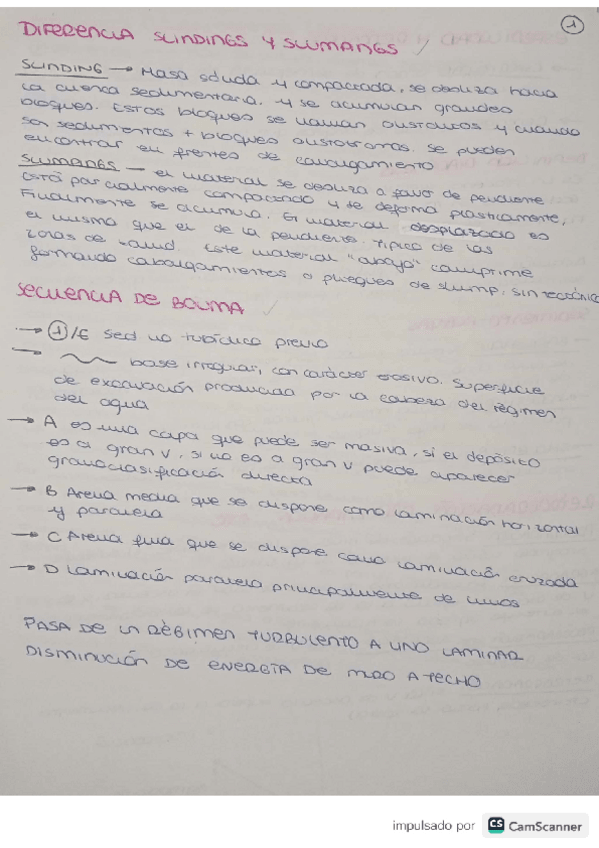 1
DIFERENCIA SLINDINGS Y SLUMANGS
SLINDING → Masa sólida y compactada, se desliza hacia
la cuenca sedimentaria, y se acumulan grandes
bloques. Estos bloques se llaman olistolitos y cuando
son sedimentos + bloques olistostromas. Se pueden
encontrar en frentes de cabalgamiento
SLUMANGS — el material se desliza a favor de pendiente
Está parcialmente compactado y se deforma plasticamente,
Finalmente se acumula. El material desplazado es
el mismo que el de la pendiente. Típico de las
zonas de talud. Este material "abajo" comprime
formando cabalgamientos o pliegues de slump, sin tectónica
SECUENCIA DE BOUMA
→ 1/E sed no turbidítico previo
→ base irregular, con carácter erosivo. Superficie
de excavación producida por la cabeza del régimen
del agua
→ A es una capa que puede ser masiva, si el depósito
es a gran v, si no es a gran v puede aparecer
granoclasificación directa
→ B Arena media que se dispone como laminación horizontal
y paralela
→ C Arena fina que se dispone como laminación cruzada
→ D Laminación paralela principalmente de limos
PASA DE UN RÉGIMEN TURBULENTO A UNO LAMINAR
DISMINUCIÓN DE ENERGÍA DE MURO A TECHO
impulsado por CS CamScanner